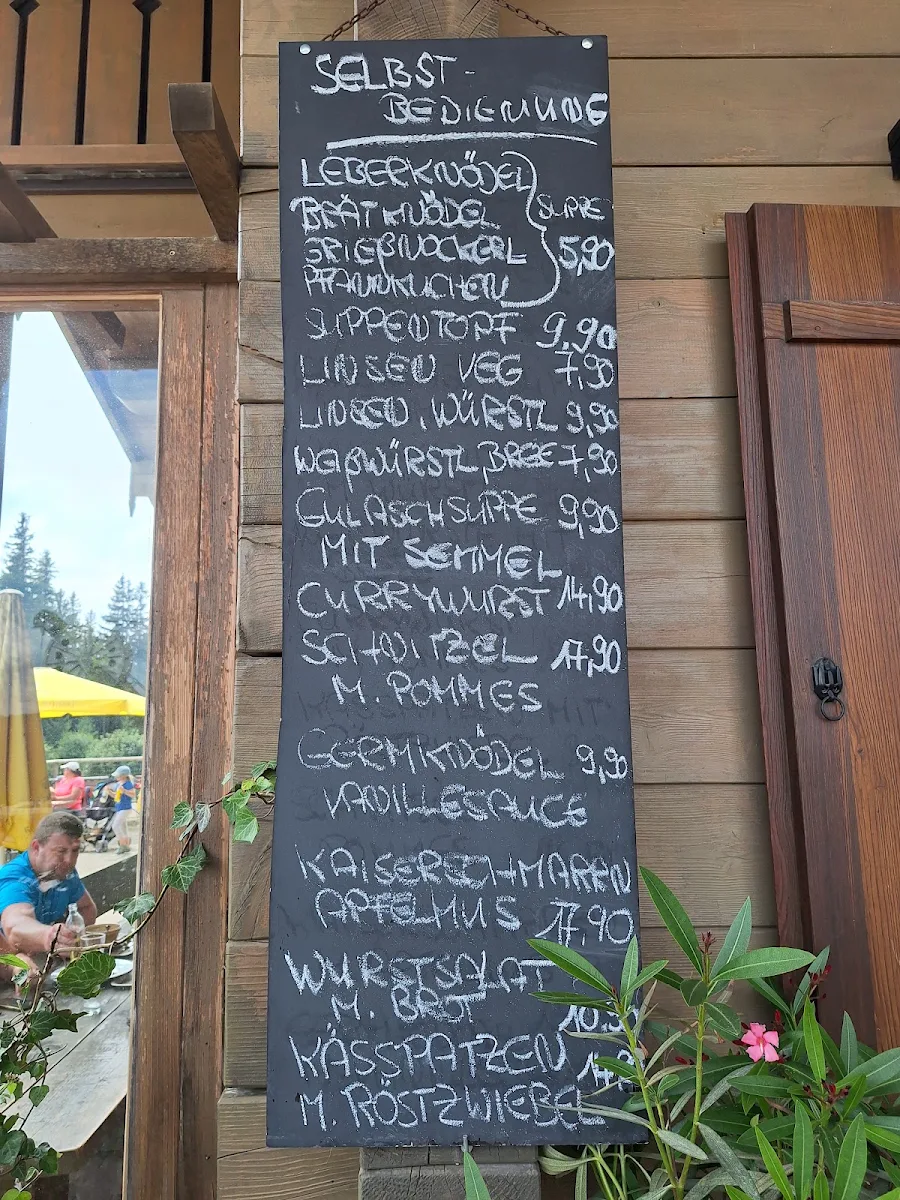 SELBST-
BEDIENUNG
LEBERKNÖDEL
BRÄTKNÖDEL SUPPE
GRIEßNOCKERL 5,90
PFANNKUCHEN
SUPPENTOPF 9,90
LINSEN VEG 7,90
LINSEN, WÜRSTL 9,90
WEIßWÜRSTL, BREZE 7,90
GULASCHSUPPE 9,90
MIT SEMMEL
CURRYWURST 14,90
SCHNITZEL 17,90
M. POMMES
GERMKNÖDEL 9,90
VANILLESAUCE
KAISERSCHMARRN
APFELMUS 17,90
WURSTSALAT
M. BROT
KÄSSPATZEN
M. RÖSTZWIEBEL